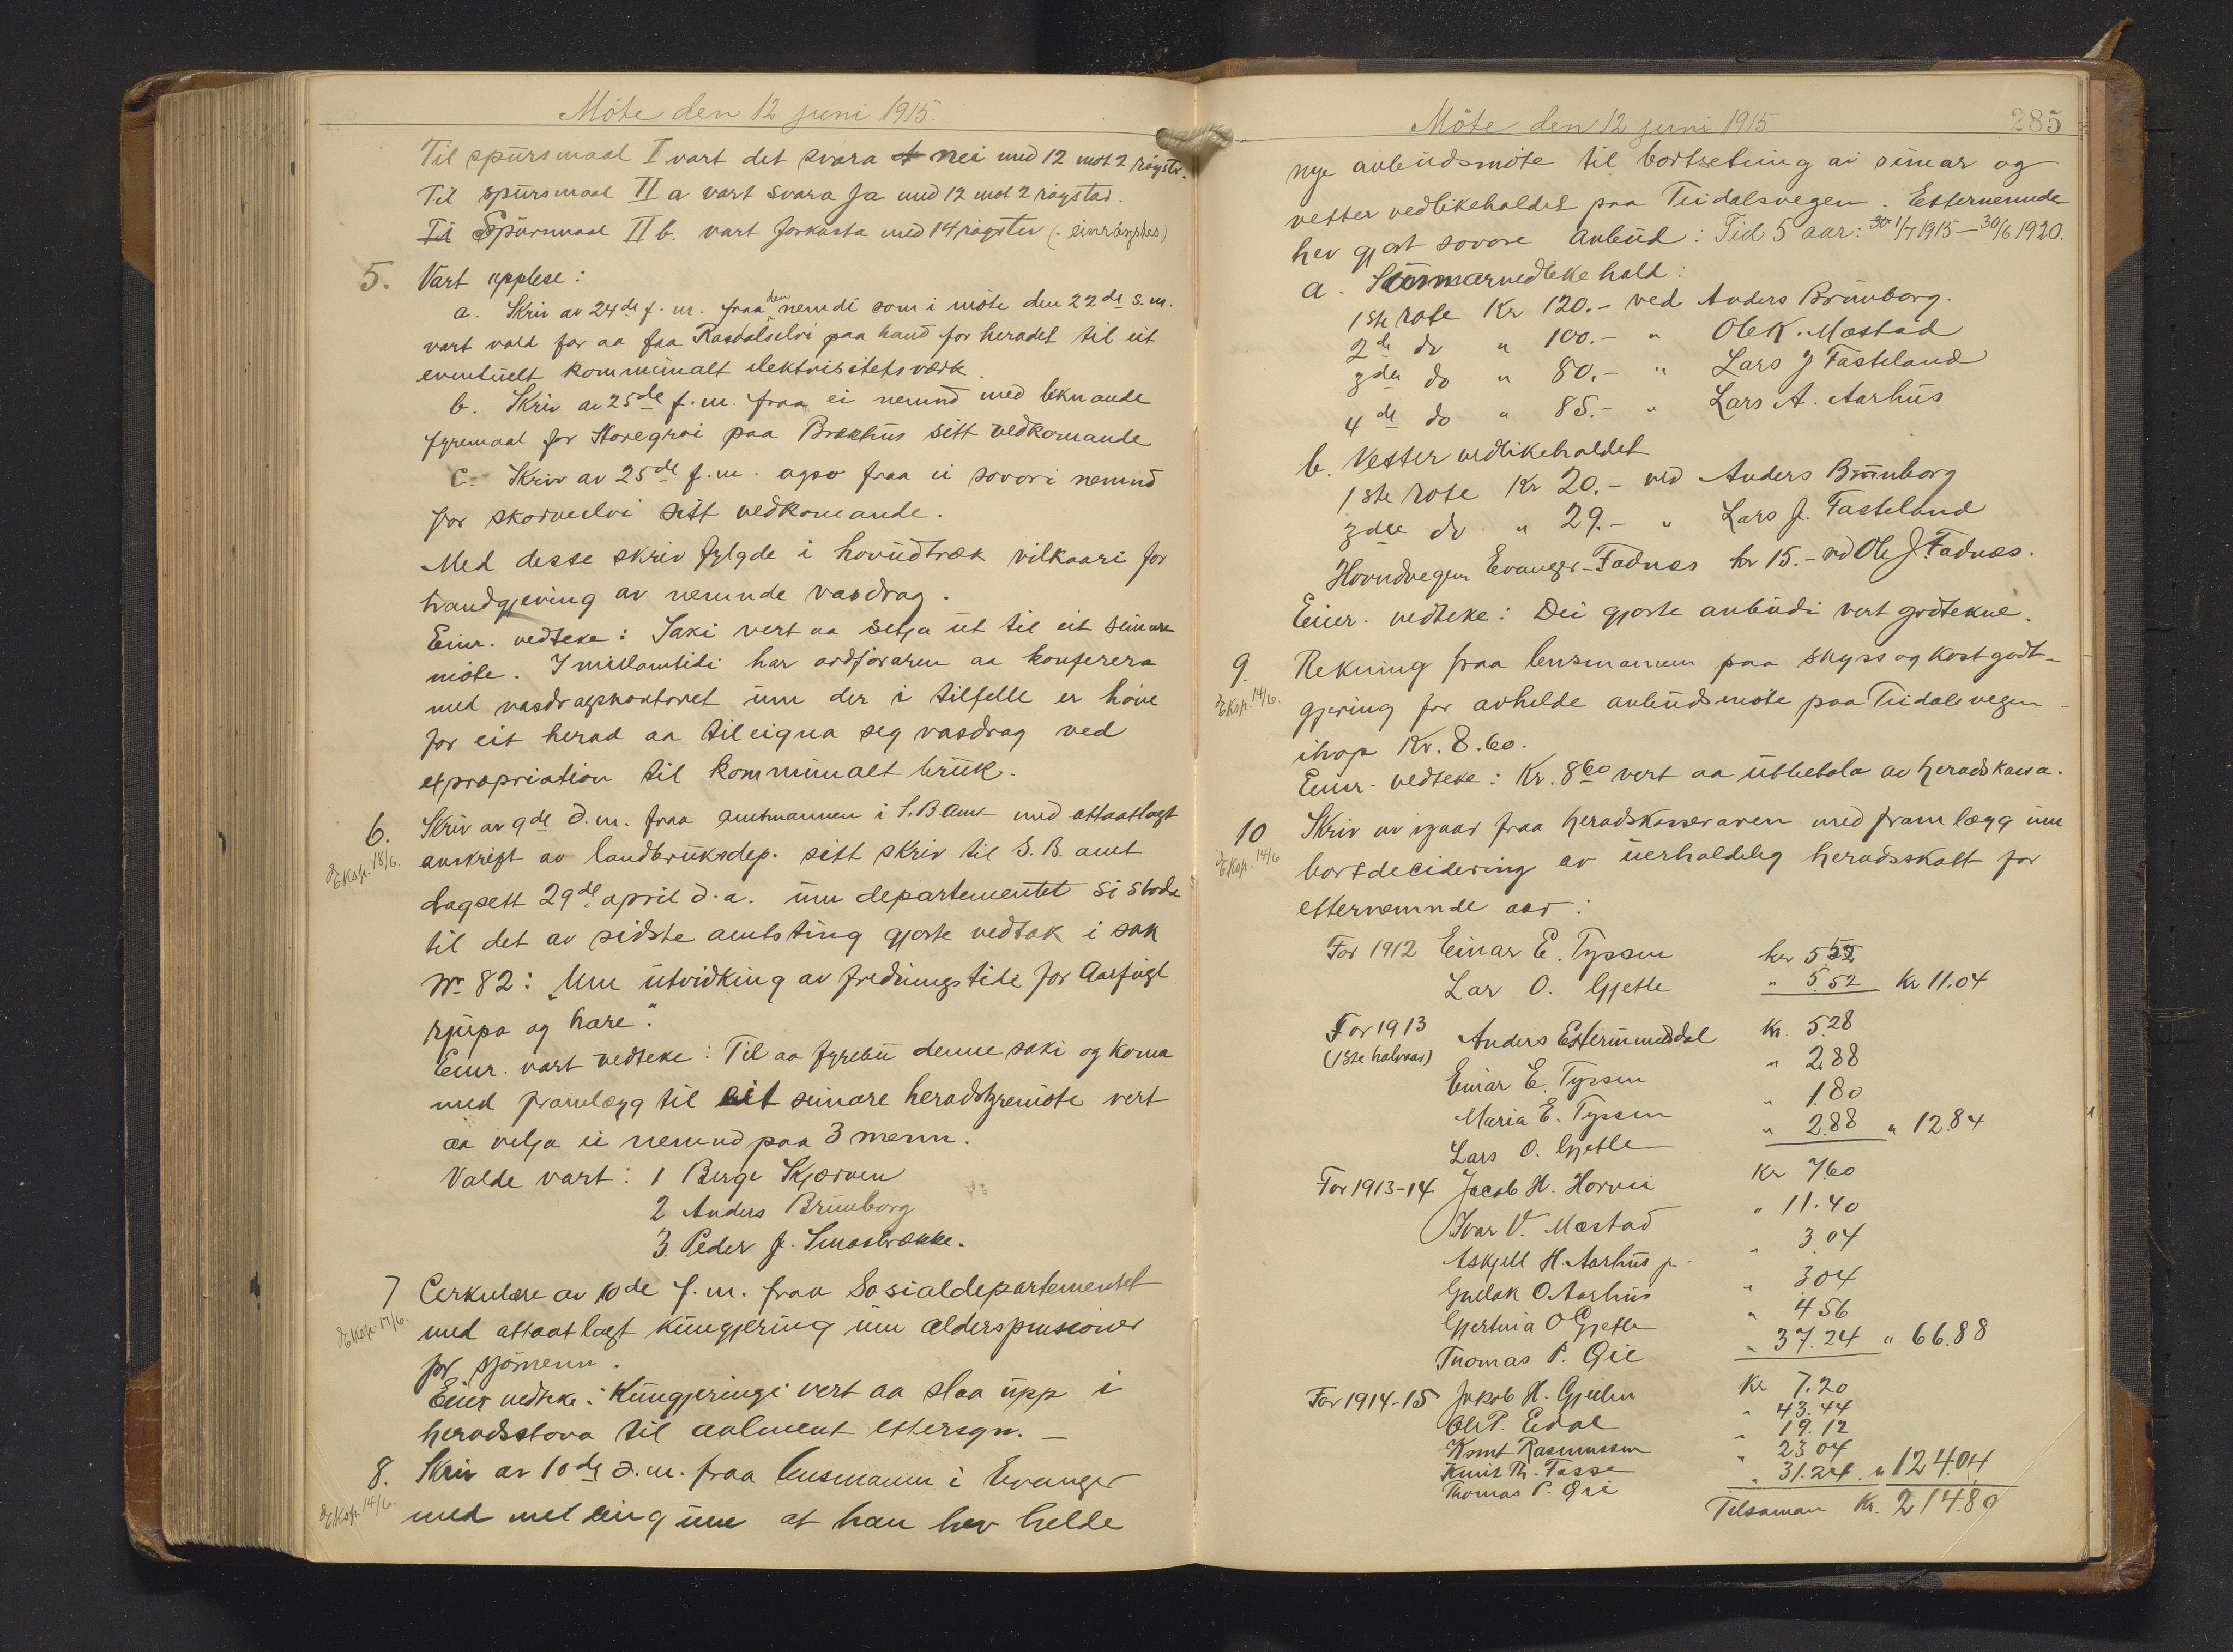 Möte den 12 juni 1915.
Til spursmaal I vart det svara nei med 12 mot 2 röyster.
Til spursmaal II a vart svara Ja med 12 mot 2 röystar.
Til Spursmaal II b. vart forkasta med 14 röyster (- einröystes)
5. Vart upplese:
a. Skriv av 24de f. m. fraa den nemdi som i möte den 22de s. m.
vart vald for aa faa Rasdalselvi paa hand for heradet til eit
eventuelt kommunalt elektrisitetsværk.
b. Skriv av 25de f. m. fraa ei nemnd med liknande
fyremaal for paa Brækhus sitt vedkomande
C. Skriv av 25de f. m. ogso fraa ei sovori nemnd
for sitt vedkomande.
Med desse skriv fylgde i hovudtræk vilkaari for
handgjeving av nemnde vasdrag.
Einr. vedteke: Saki vert aa setja ut til eit seinare
möte. I millomtidi har ordföraren aa konferera
med vasdragskontoret um der i tilfelle er höve
for eit herad aa tileigna seg vasdrag ved
expropriation til kommunalt bruk.
6. Skriv av 9de d. m. fraa amtmannen i S. B. amt med attaatlagt
Eksp. 18/6.
avskrift av landbruksdep. sitt skriv til S. B. amt
dagsett 29de april d. a. um departementet si stoda
til det av sidste amtsting gjorte vedtak i sak
No 82: „Um utviding av fredningstidi for Aarfugl
rjupa og hare".
Einr. vart vedteke: Til aa fyrebu denne saki og koma
med framlægg til eit seinare heradstyremöte vert
aa velja ei nemnd paa 3 menn.
Valde vart: 1 Berge Skjerven
2 Anders Brunborg
3. Peder J. Smaabrække.
7 Cerkulære av 10de f. m. fraa Sosialdepartementet
Eksp. 17/6.
med attaatlagt kungjering um alderspensioner
for sjömenn.
Einr vedteke: Kungjeringi vert aa slaa upp i
heradsstova til aalment ettersyn. —
8. Skriv av 10de d. m. fraa lensmann i Evanger
Eksp. 14/6.
med melding um at han hev helde
Möte den 12 juni 1915. 285
nye anbudsmöte til bortseting av sumar og
vetter vedlikehaldet paa Teidalsvegen. Etternemnde
hev gjort sovore anbud: Tid 5 aar: 1/7 1915 – 30/6 1920.
a. Sumarvedlikehald:
1ste rote Kr 120.- ved Anders Brunborg.
2de do " 100.- " Ole K. Mæstad
3die do " 80.- " Lars J Fasteland
4de do " 85.- " Lars A. Aarhus
b. Vetter vedlikehaldet
1ste rote Kr 20.- ved Anders Brunborg
3die do " 29.- " Lars J. Fasteland
Hovudvegen Evanger-Fadnes kr 15.- ved Ole J. Fadnes.
Einr. vedteke: Dei gjorte anbudi vert godtekne.
9. Rekning fraa lensmannen paa skyss og kostgodt-
Eksp. 14/6.
gjering for avhelde anbudsmöte paa Teidalsvegen
ihop Kr. 8.60.
Einr. vedteke: Kr. 8.60 vert aa utbetala av heradskassa.
10 Skriv av igaar fraa heradskasseraren med framlægg um
Eksp. 14/6
bortdecidering av uerhaldeleg heradsskatt for
etternemnde aar:
For 1912 Einar E. Tyssen kr 5.52
Lar O. Gjetle " 5.52 Kr 11.04
For 1913 Anders Kr. 5.28
(1ste halvaar)
Einar E. Tyssen " 2.88
Maria E. Tyssen " 1.80
Lars O. Gjetle " 2.88 " 12.84
For 1913-14 Jacob H. Horvei Kr 7.60
Ivar V. Mæstad " 11.40
Askjell H. Aarhus " 3.04
Gudlak O Aarhus " 3.04
Gjertina O Gjetle " 4.56
Thomas P. Öie " 37.24 " 66.88
For 1914-15 Jakob H. Gjeilen Kr 7.20
Ole P. Eidal " 43.44
Knut Rasmussen " 19.12
Knut Th. Fosse " 23.04
Thomas P. Öie " 31.24 " 124.04
Tilsaman Kr. 214.80